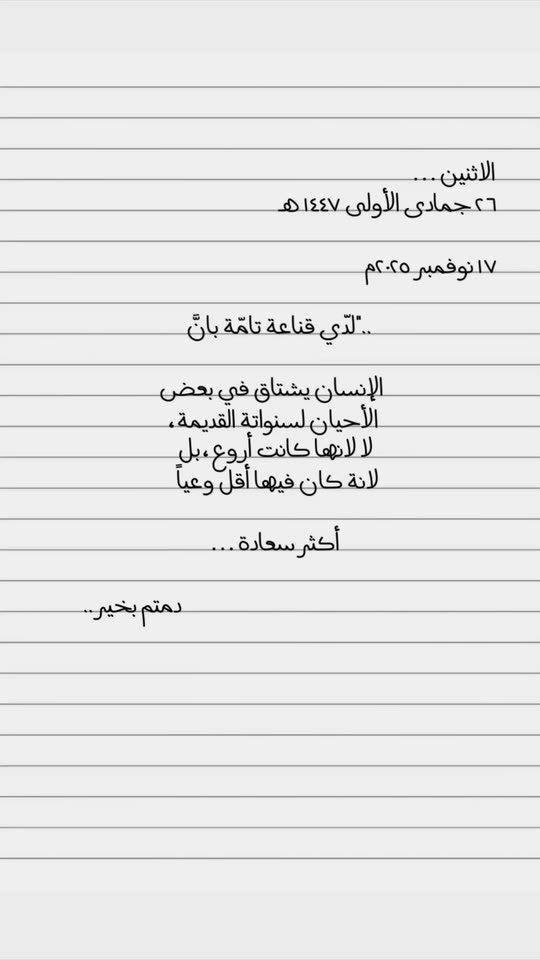 الاثنين ...
٢٦ جمادى الأولى ١٤٤٧ هـ
١٧ نوفمبر ٢٠٢٥م
.."لدّي قناعة تامّة بانَّ
الإنسان يشتاق في بعض
الأحيان لسنواتة القديمة ،
لا لانها كانت أروع ، بل
لانة كان فيها أقل وعياً
أكثر سعادة ...
دمتم بخير ..